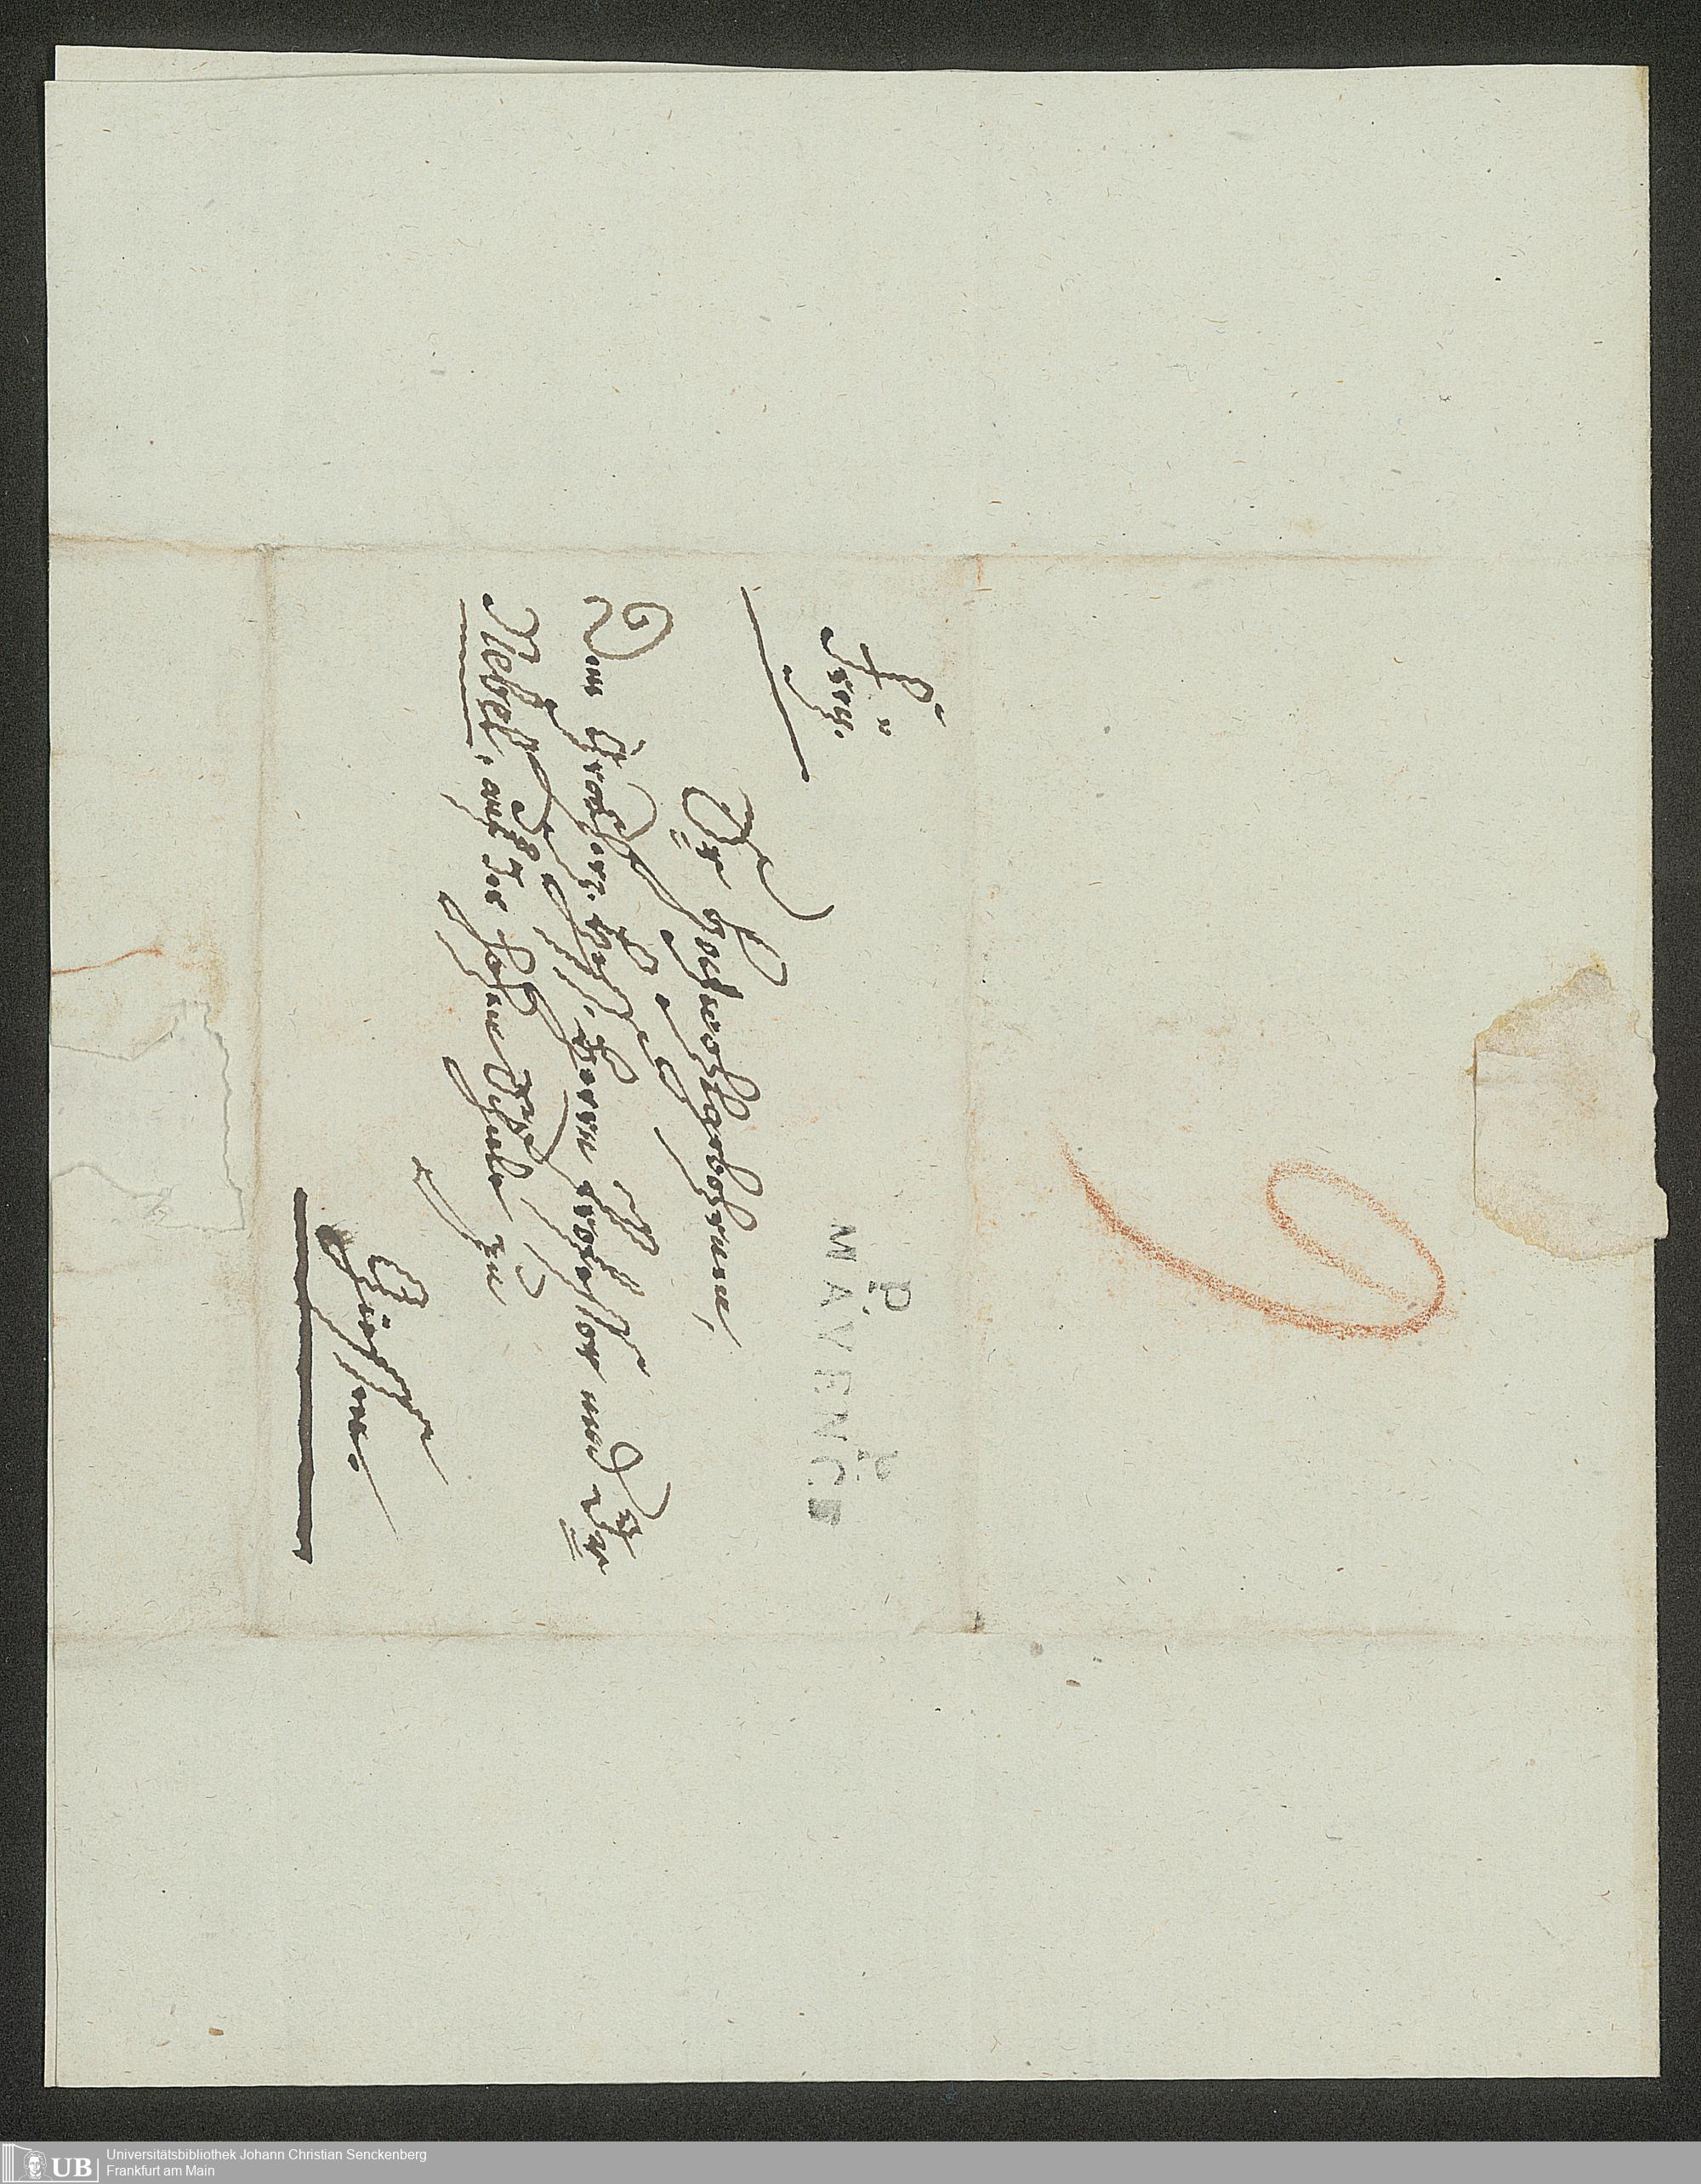 frey.
P. P.
MAYENCE
Sr Hochwohlgebohrnen,
Dem Großherz. Heß. Herrn Professor und Dr
Nebel, auf der hohen Schule zu
Gießen.
UB
Universitätsbibliothek Johann Christian Senckenberg
Frankfurt am Main